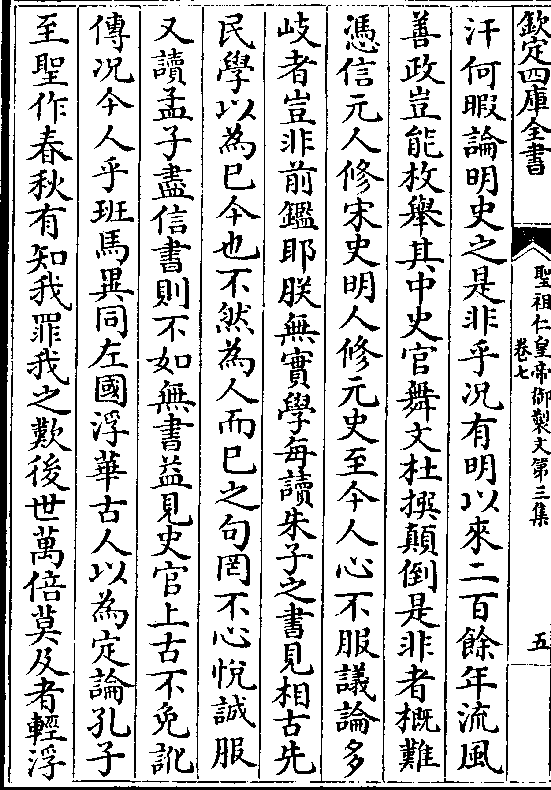 欽定四庫全書
聖祖仁皇帝御製文第三集
卷七
五
汗何暇論明史之是非乎况有明以來二百餘年流風
善政豈能枚舉其中史官舞文杜撰顛倒是非者概難
憑信元人修宋史明人修元史至今人心不服議論多
岐者豈非前鑑耶朕無實學每讀朱子之書見相古先
民學以為已今也不然為人而已之句罔不心悅誠服
又讀孟子盡信書則不如無書益見史官上古不免訛
傳况今人乎班馬異同左國浮華古人以為定論孔子
至聖作春秋有知我罪我之歎後世萬倍莫及者輕浮